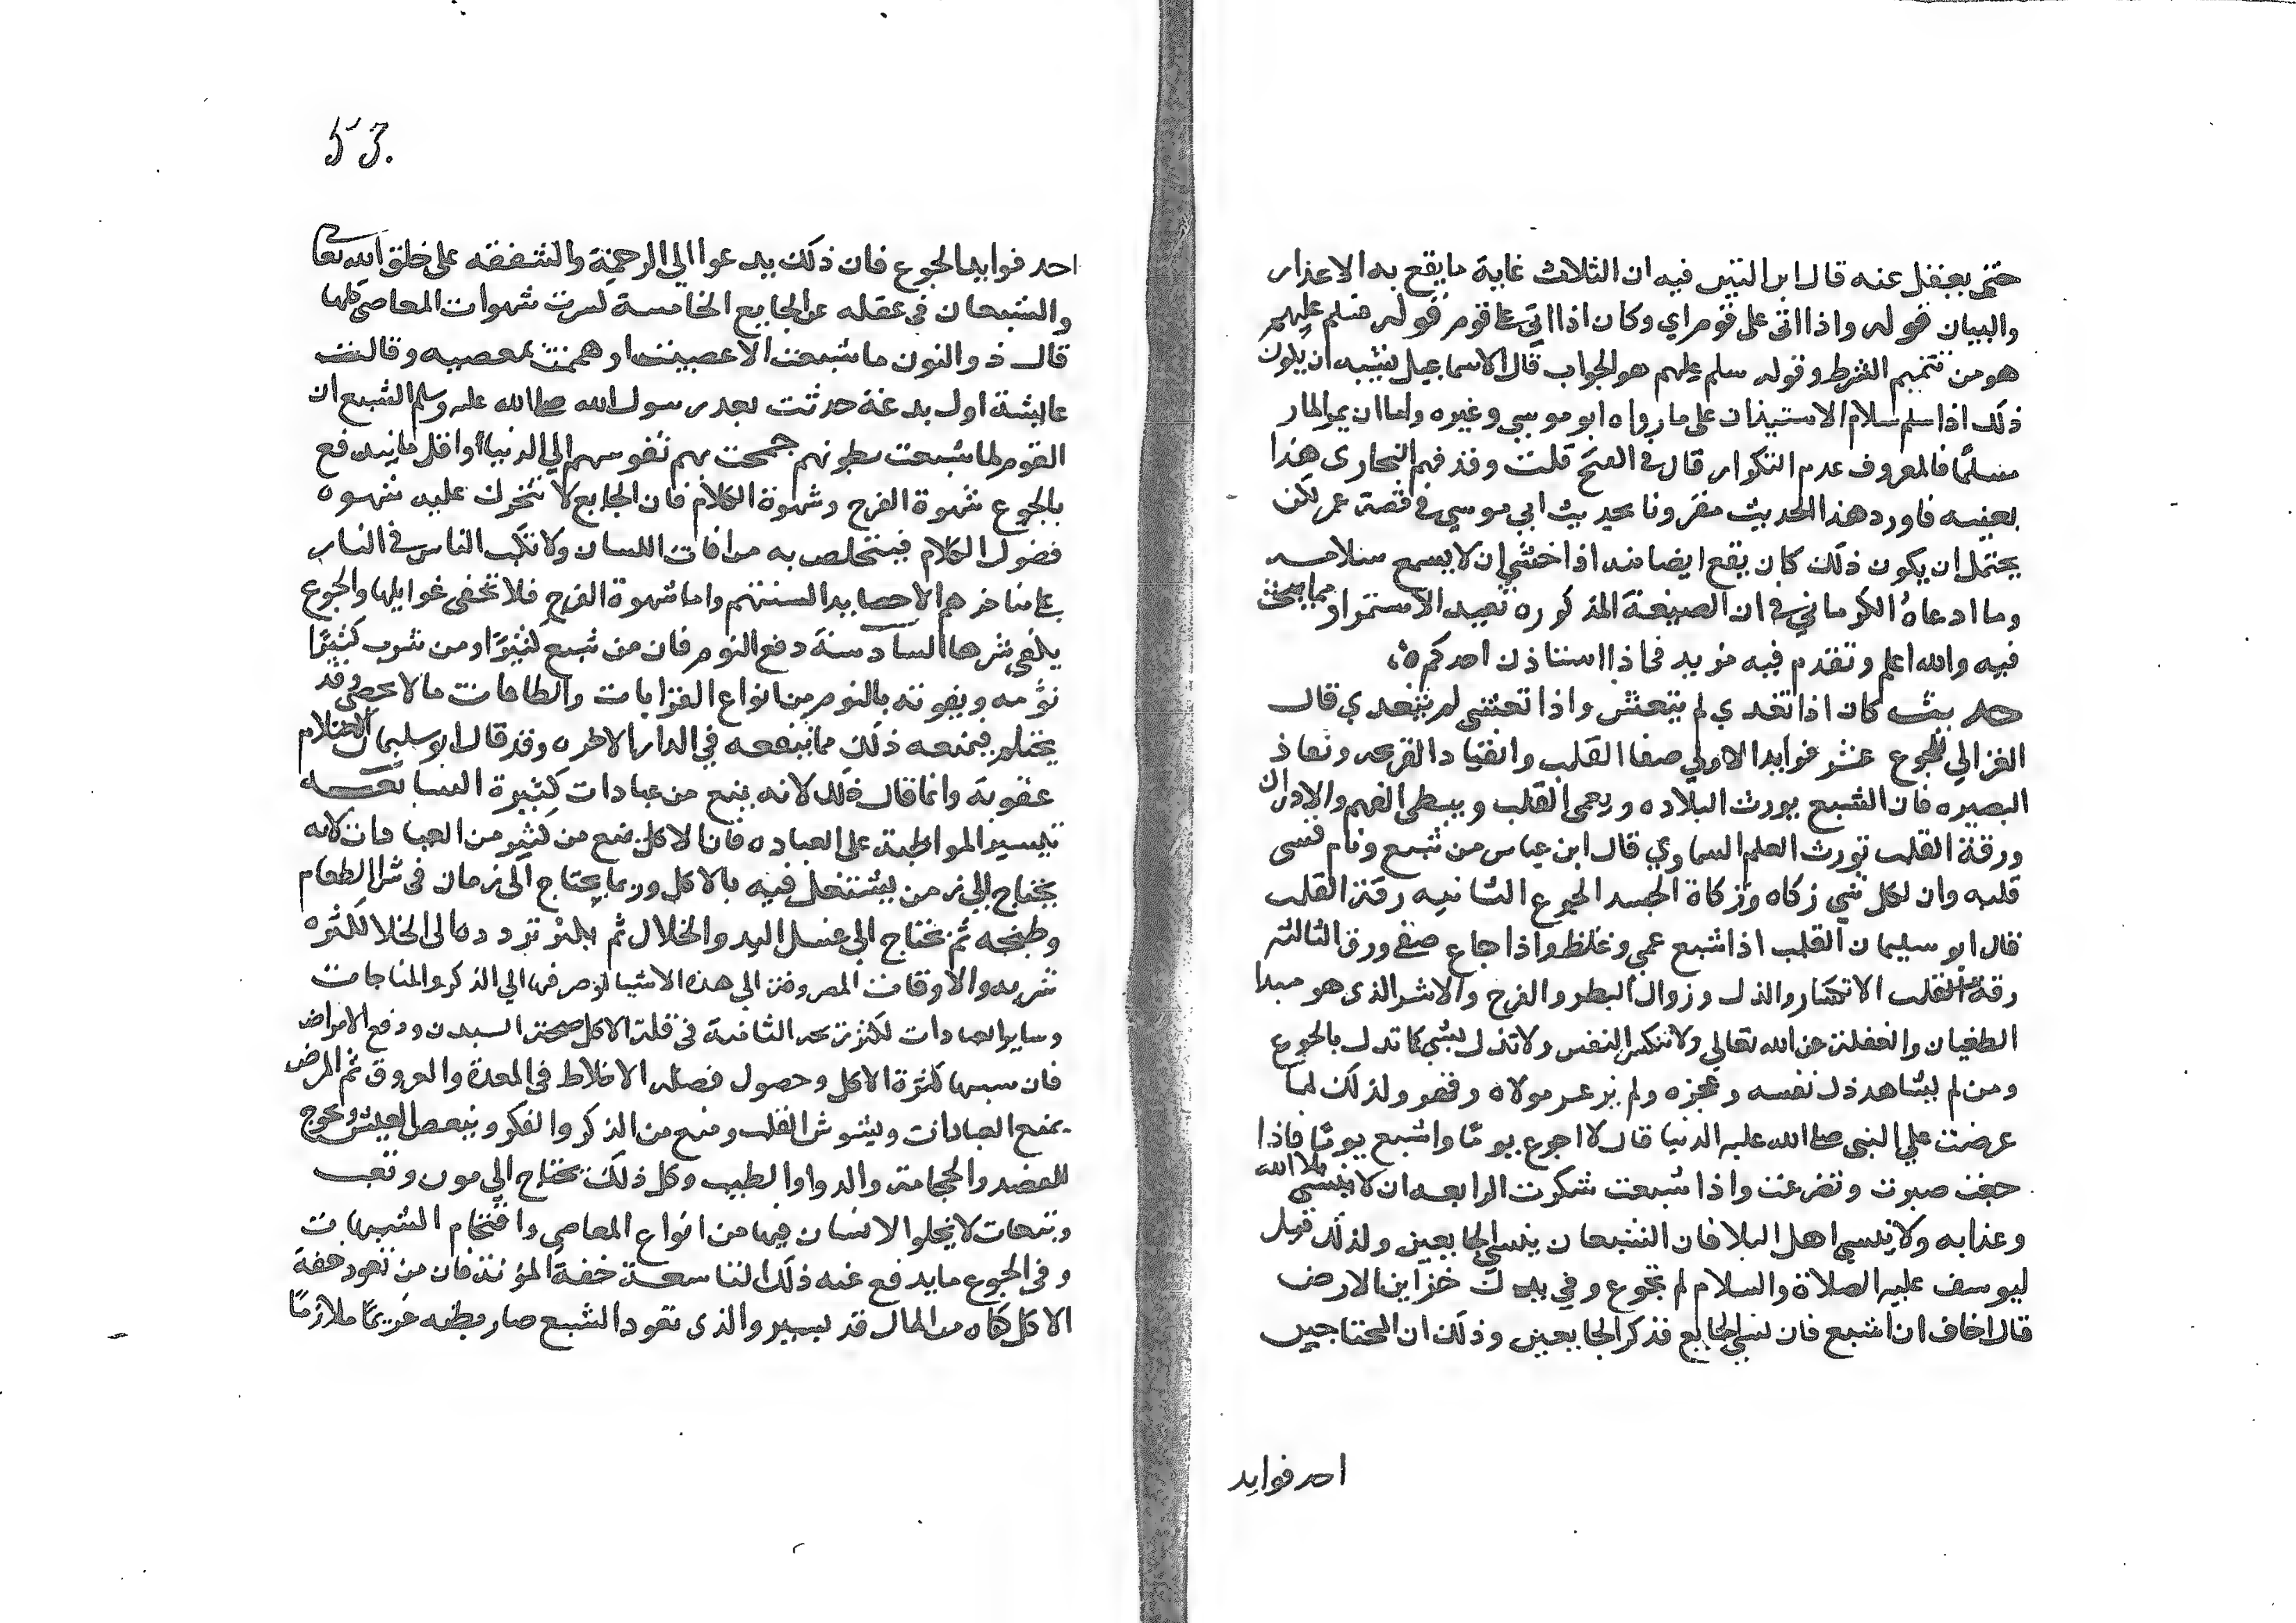 حتى يعقل عنه قال ابن التين فيه ان الثلاث غاية ما يقع به الاعذار
والبيان قوله واذا اتى على قوم اي وكان اذا اتى على قوم قوله فسلم عليهم
هو من تتميم الشرط وقوله سلم عليهم هو الجواب قال الاسماعيلي يشبه ان يكون
ذلك اذا سلم سلام الاستيذان على ما رواه ابو موسى وغيره واما ان يمر المار
مسلما فالمعروف عدم التكرار قال في الفتح قلت وقد فهم البخارى هذا
بعينه فاورد هذا الحديث مقرونا بحديث ابي موسى في قصة عمر لكن
يحتمل ان يكون ذلك كان يقع ايضا منه اذا خشي ان لا يسمع سلامه
وما ادعاه الكرماني في ان الصيغة المذكوره تفيد الاستمرار مما يبحث
فيه والله اعلم وتقدم فيه مزيد في اذا استاذن احدكم
حديث كان اذا تغدي لم يتعش واذا تعشي لم يتغدي قال
الغزالي للجوع عشر فوايد الاولي صفا القلب وانقياد القريحه ونفاذ
البصيره فان الشبع يورث البلاده ويعمى القلب ويبطي الفهم والادراك
ورقة القلب تورث العلم السماوي قال ابن عباس من شبع ونام قسى
قلبه وان لكل شي زكاه وزكاة الجسد الجوع الثانيه رقة القلب
قال ابو سليمان القلب اذا شبع عمي وغلظ واذا جاع صفي ورق الثالثه
رقة القلب الانكسار والذل وزوال البطر والفرح والاشر الذى هو مبدا
الطغيان والغفلة عن الله تعالي ولا تنكسر النفس ولا تذل بشي كما تذل بالجوع
ومن لم يشاهد ذل نفسه وعجزه ولم ير عز مولاه وقهره ولذلك لما
عرضت علي النبى صلى الله عليه الدنيا قال لا اجوع يوما واشبع يوما فاذا
جعت صبرت وتضرعت واذا شبعت شكرت الرابعه ان لا ينسي بلا الله
وعذابه ولا ينسي اهل البلا فان الشبعان ينسي الجايعين ولذلك قيل
ليوسف عليه الصلاة والسلام لم تجوع وفي يدك خزاين الارض
قال اخاف ان اشبع فان نسي الجايع فذكر الجايعين وذلك ان المحتاجين
احد فوايد
53.
احد فوايد الجوع فان ذلك يدعوا الي الرحمة والشفقه على خلق الله تعالى
والشبعان في غفله عن الجايع الخامسة كسرت شهوات المعاصى كلها
قال ذو النون ما شبعت الا عصيت او هممت بمعصيه وقالت
عايشة اول بدعة حدثت بعد رسول الله صلى الله عليه وسلم الشبع ان
القوم لما شبعت بطونهم جمحت بهم نفوسهم الي الدنيا واقل ما يندفع
بالجوع شهوة الفرج وشهوة الكلام فان الجايع لا تتحرك عليه شهوه
فضول الكلام فيتخلص به من افات اللسان ولا تكب الناس في النار
على مناخرهم الا حصايد السنتهم واما شهوة الفرج فلا تخفى غوايلها والجوع
يكفي شرها السادسة دفع النوم فان من شبع كثيرا ومن شرب كثيرا
نومه ويفوته بالنوم من انواع القرابات والطاعات ما لا يحصى وقد
يحتلم فيمنعه ذلك مما ينفعه في الدار الاخره وقد قال ابو سليمان الاحتلام
عقوبة وانما قال ذلك لانه يمنع من عبادات كثيرة السابعه
تيسير المواظبة على العباده فان الاكل يمنع من كثير من العبادات لانه
يحتاج الي زمن يشتغل فيه بالاكل وربما يحتاج الى زمان في شرا الطعام
وطبخه ثم يحتاج الى غسل اليد والخلال ثم يكثر تردده الى الخلا لكثره
شربه والاوقات المصروفة الى هذه الاشيا لو صرفها الي الذكر والمناجات
وساير العبادات لكثر ربحه الثامنة في قلة الاكل صحة البدن ودفع الامراض
فان سببها كثرة الاكل وحصول فضلة الاخلاط في المعدة والعروق ثم المرض
يمنع العبادات ويشوش القلب ويمنع من الذكر والفكر وينغص العيش ويحوج
للفصد والحجامة والدوا والطبيب وكل ذلك يحتاج الي مون وتعب
وتبعات لا يخلوا الانسان فيها من انواع المعاصى واقتحام الشبهات
وفي الجوع ما يدفع عنه ذلك التاسعة خفة المؤنة فان من تعود خفة
الاكل كفاه من المال قدر يسير والذى تعود الشبع صار بطنه غريما ملازما